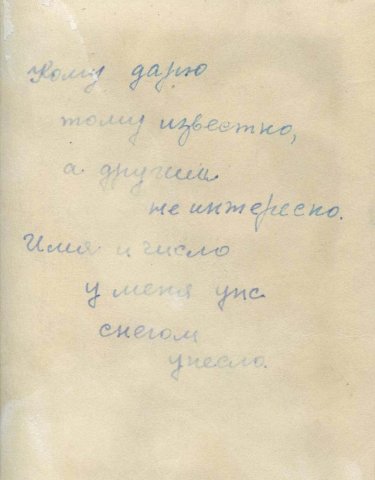 Кому дарю
тому известно,
а другим
не интересно.
Имя и число
у меня унс
снегом
унесло.